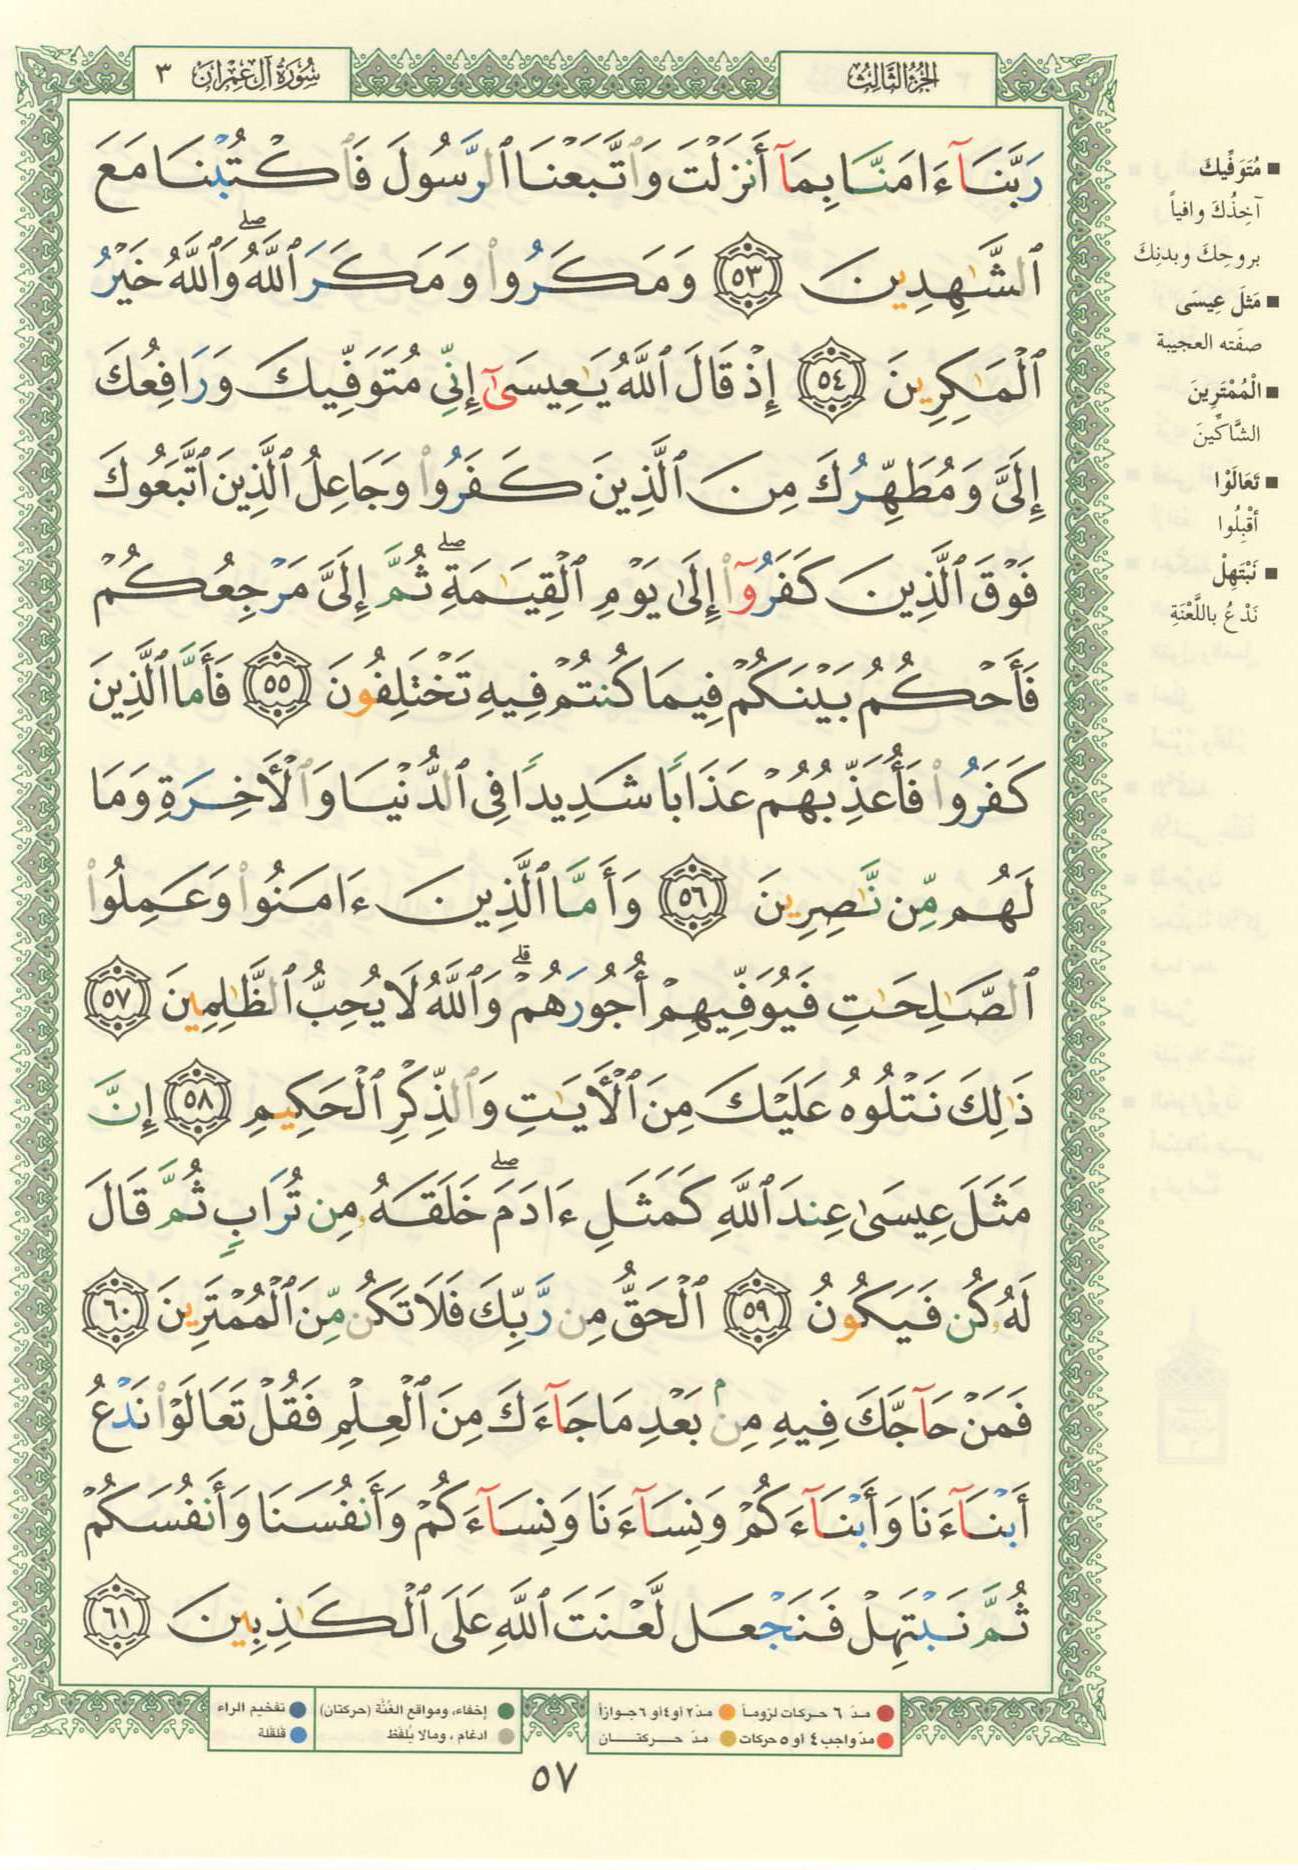 الجزء الثالث
سورة آل عمران ٣
رَبَّنَآ ءَامَنَّا بِمَآ أَنزَلْتَ وَٱتَّبَعْنَا ٱلرَّسُولَ فَٱكْتُبْنَا مَعَ
ٱلشَّٰهِدِينَ ٥٣ وَمَكَرُوا۟ وَمَكَرَ ٱللَّهُ ۖ وَٱللَّهُ خَيْرُ
ٱلْمَٰكِرِينَ ٥٤ إِذْ قَالَ ٱللَّهُ يَٰعِيسَىٰٓ إِنِّى مُتَوَفِّيكَ وَرَافِعُكَ
إِلَىَّ وَمُطَهِّرُكَ مِنَ ٱلَّذِينَ كَفَرُوا۟ وَجَاعِلُ ٱلَّذِينَ ٱتَّبَعُوكَ
فَوْقَ ٱلَّذِينَ كَفَرُوٓا۟ إِلَىٰ يَوْمِ ٱلْقِيَٰمَةِ ۖ ثُمَّ إِلَىَّ مَرْجِعُكُمْ
فَأَحْكُمُ بَيْنَكُمْ فِيمَا كُنتُمْ فِيهِ تَخْتَلِفُونَ ٥٥ فَأَمَّا ٱلَّذِينَ
كَفَرُوا۟ فَأُعَذِّبُهُمْ عَذَابًا شَدِيدًا فِى ٱلدُّنْيَا وَٱلْأَخِرَةِ وَمَا
لَهُم مِّن نَّٰصِرِينَ ٥٦ وَأَمَّا ٱلَّذِينَ ءَامَنُوا۟ وَعَمِلُوا۟
ٱلصَّٰلِحَٰتِ فَيُوَفِّيهِمْ أُجُورَهُمْ ۗ وَٱللَّهُ لَا يُحِبُّ ٱلظَّٰلِمِينَ ٥٧
ذَٰلِكَ نَتْلُوهُ عَلَيْكَ مِنَ ٱلْأَيَٰتِ وَٱلذِّكْرِ ٱلْحَكِيمِ ٥٨ إِنَّ
مَثَلَ عِيسَىٰ عِندَ ٱللَّهِ كَمَثَلِ ءَادَمَ ۖ خَلَقَهُۥ مِن تُرَابٍ ثُمَّ قَالَ
لَهُۥ كُن فَيَكُونُ ٥٩ ٱلْحَقُّ مِن رَّبِّكَ فَلَا تَكُن مِّنَ ٱلْمُمْتَرِينَ ٦٠
فَمَنْ حَآجَّكَ فِيهِ مِنۢ بَعْدِ مَا جَآءَكَ مِنَ ٱلْعِلْمِ فَقُلْ تَعَالَوْا۟ نَدْعُ
أَبْنَآءَنَا وَأَبْنَآءَكُمْ وَنِسَآءَنَا وَنِسَآءَكُمْ وَأَنفُسَنَا وَأَنفُسَكُمْ
ثُمَّ نَبْتَهِلْ فَنَجْعَل لَّعْنَتَ ٱللَّهِ عَلَى ٱلْكَٰذِبِينَ ٦١
■ مُتَوَفِّيكَ
آخِذُكَ وافياً
بروحِكَ وبدنِكَ
■ مَثَلَ عِيسَى
صفَته العجيبة
■ الْمُمْتَرِينَ
الشَّاكِّينَ
■ تَعَالَوْا
أقْبِلُوا
■ نَبْتَهِلْ
نَدْعُ باللَّعْنَةِ
مدّ ٦ حركات لزوماً ● مدّ ٢ أو ٤ أو ٦ جوازاً
مدّ واجب ٤ أو ٥ حركات ● مدّ حركتان
إخفاء، ومواقع الغُنَّة (حركتان) ● تفخيم الراء
ادغام، ومالا يُلفَظ ● قلقلة
٥٧